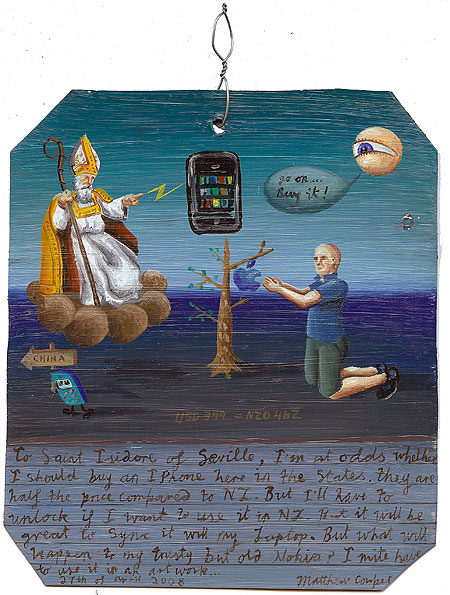 go on...
Buy it!
CHINA
USD 399 = NZD 462
To Saint Isidore of Seville, I'm at odds whether
I should buy an I Phone here in the States. They are
half the price compared to NZ. But I'll have to
unlock if I want to use it in NZ. But it will be
great to Sync it will my Laptop. But what will
happen to my trusty but old Nokia? I mite have
to use it in an art work...
27th of April 2008 Matthew Couper